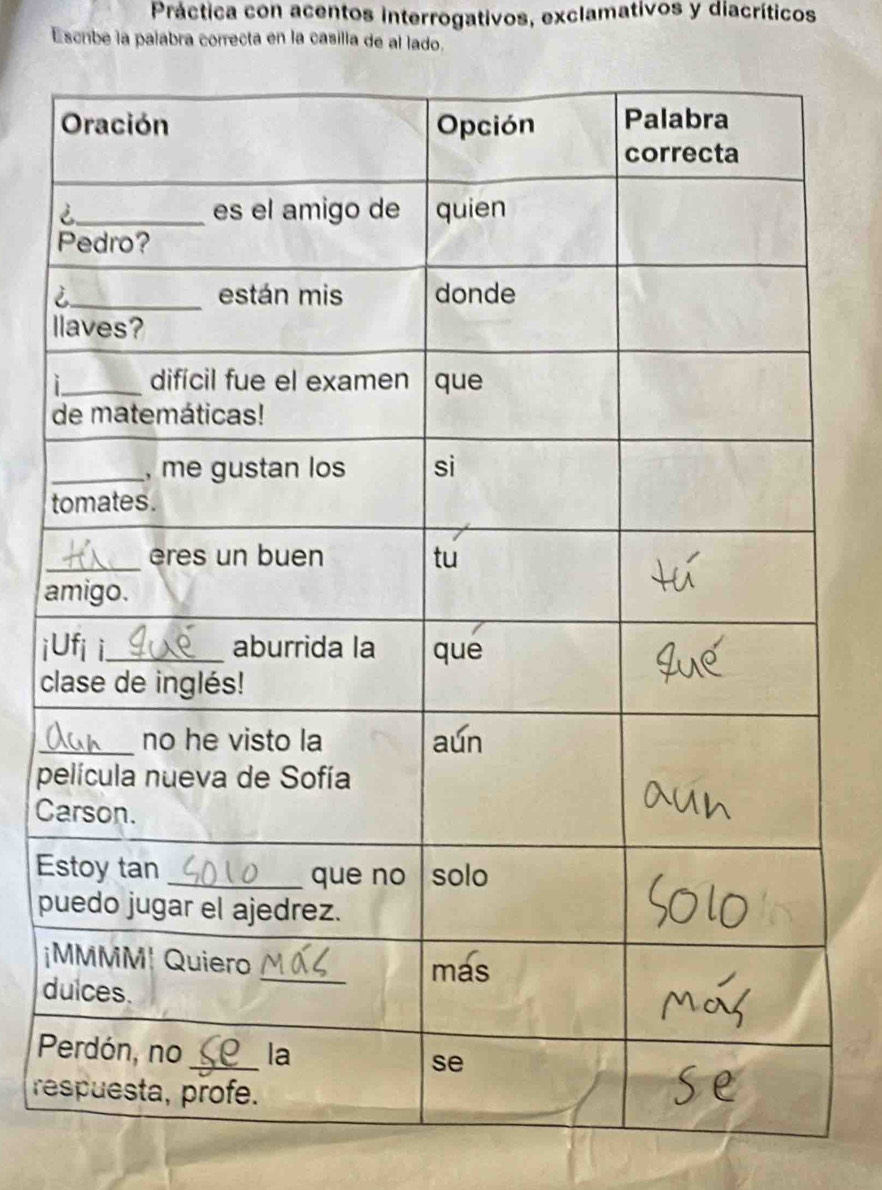 Práctica con acentos interrogativos, exclamativos y diacríticos
Escribe la palabra correcta en la casilla de al lado.
Oración Opción Palabra correcta
¿________ es el amigo de quien
Pedro?
¿________ están mis donde
llaves?
¡_____ difícil fue el examen que
de matemáticas!
______, me gustan los si
tomates.
tú eres un buen tú tú
amigo.
¡Uf¡ ¡qué aburrida la qué qué
clase de inglés!
aun no he visto la aún aún
película nueva de Sofía
Carson.
Estoy tan solo que no solo solo
puedo jugar el ajedrez.
¡MMMM! Quiero más más más
dulces.
Perdón, no se la se se
respuesta, profe.